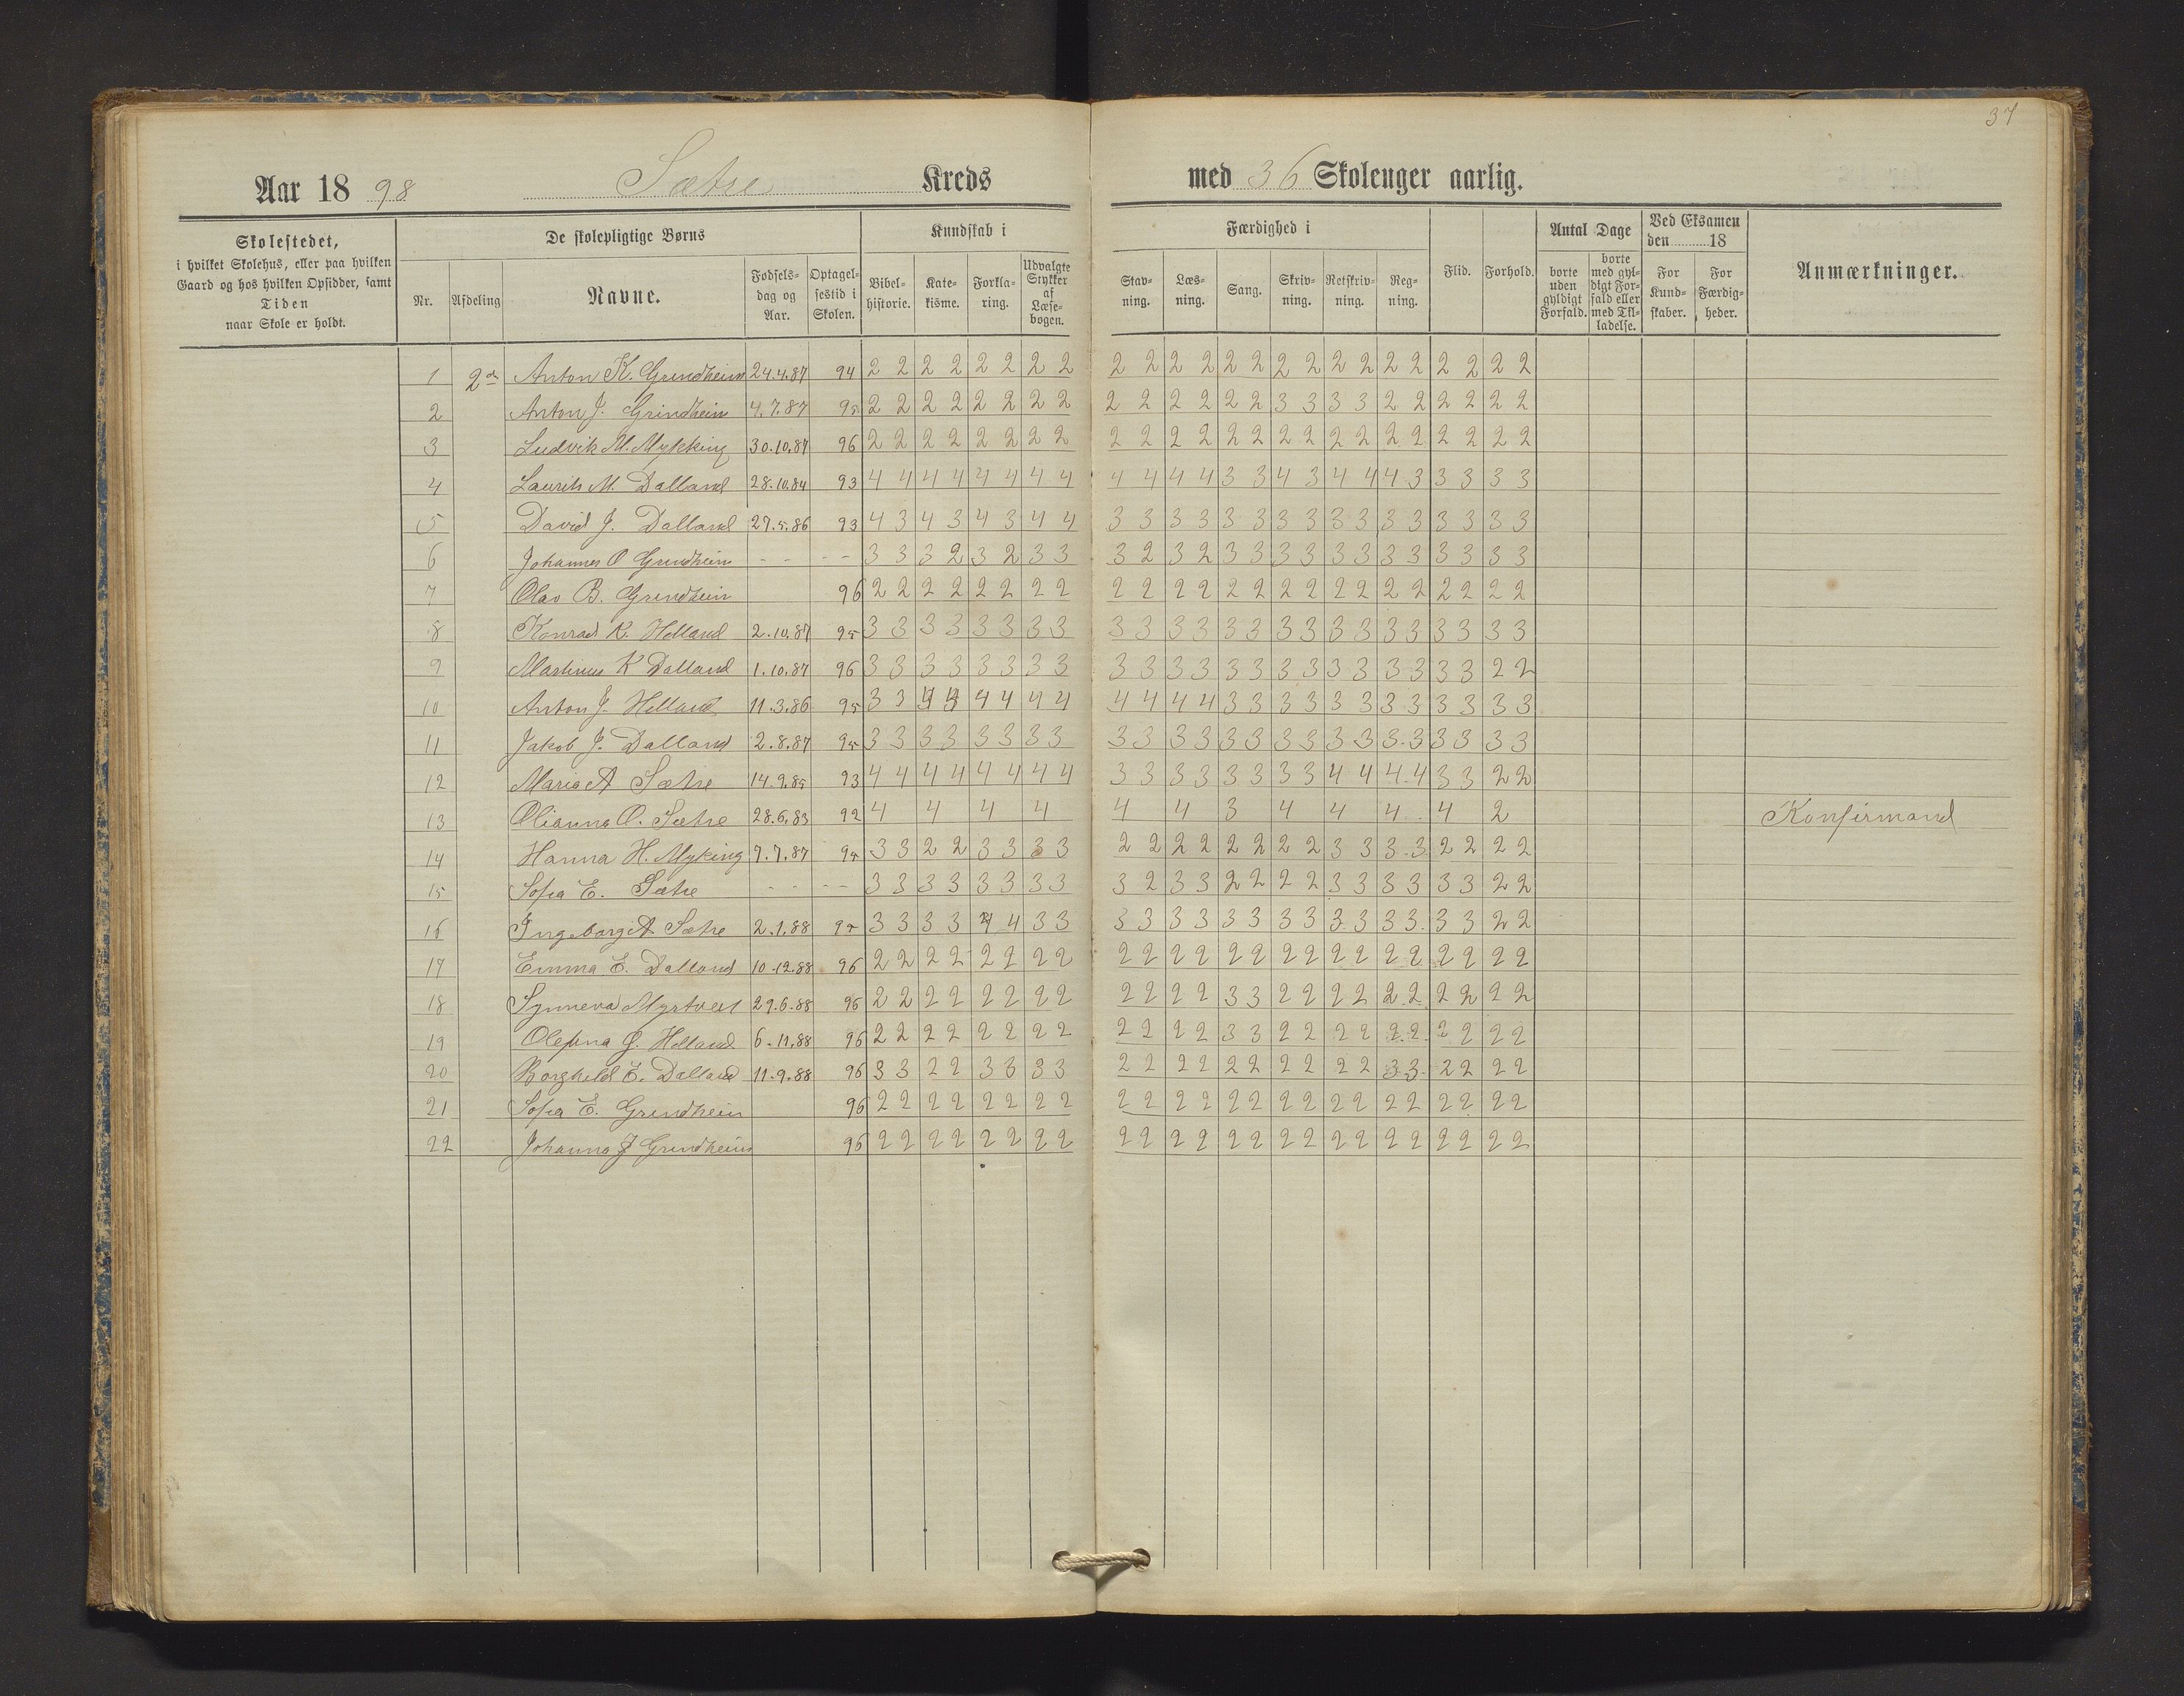 37
Aar 1898 Sætre Kreds med 36 Skoleuger aarlig.
Skolestedet, i hvilket Skolehus, eller paa hvilken Gaard og hos hvilken Opsidder, samt Tiden naar Skole er holdt. | De skolepligtige Børns | Kundskab i | Færdighed i | Flid. | Forhold. | Antal Dage | Ved Eksamen den 18 | Anmærkninger.
Nr. | Afdeling | Navne. | Fødselsdag og Aar. | Optagelsestid i Skolen. | Bibelhistorie. | Katekisme. | Forklaring. | Udvalgte Stykker af Læsebogen. | Stavning. | Læsning. | Sang. | Skrivning. | Retskrivning. | Regning. | borte uden gyldigt Forfald. | borte med gyldigt Forfald eller med Tilladelse. | For Kundskaber. | For Færdigheder.
1 2den Anton K. Grindheim 24.4.87 94 2 2 2 2 2 2 2 2 2 2 2 2 2 2 2 2 2 2 2 2 2 2 2 2
2 Anton J. Grindheim 4.7.87 95 2 2 2 2 2 2 2 2 2 2 2 2 2 2 3 3 3 3 2 2 2 2 2 2
3 Ludvik M. Mykking 30.10.87 96 2 2 2 2 2 2 2 2 2 2 2 2 2 2 2 2 2 2 2 2 2 2 2 2
4 Laurits M. Dalland 28.10.84 93 4 4 4 4 4 4 4 4 4 4 4 4 3 3 4 3 4 4 4 3 3 3 3 3
5 David J. Dalland 27.5.86 93 4 3 4 3 4 3 4 4 3 3 3 3 3 3 3 3 3 3 3 3 3 3 3 3
6 Johannes O Grindheim - - - - 3 3 3 2 3 2 3 3 3 2 3 2 3 3 3 3 3 3 3 3 3 3 3 3
7 Olav B. Grindheim 96 2 2 2 2 2 2 2 2 2 2 2 2 2 2 2 2 2 2 2 2 2 2 2 2
8 Konrad K. Helland 2.10.87 95 3 3 3 3 3 3 3 3 3 3 3 3 3 3 3 3 3 3 3 3 3 3 3 3
9 Martinus K Dalland 1.10.87 96 3 3 3 3 3 3 3 3 3 3 3 3 3 3 3 3 3 3 3 3 3 3 2 2
10 Anton J. Helland 11.3.86 95 3 3 4 4 4 4 4 4 4 4 4 4 3 3 3 3 3 3 3 3 3 3 3 3
11 Jakob J. Dalland 2.8.87 95 3 3 3 3 3 3 3 3 3 3 3 3 3 3 3 3 3 3 3 3 3 3 3 3
12 Maria A Sætre 14.9.85 93 4 4 4 4 4 4 4 4 3 3 3 3 3 3 3 3 4 4 4 4 3 3 2 2
13 Olianna O. Sætre 28.6.83 92 4 4 4 4 4 4 3 4 4 4 4 2 Konfirmand
14 Hanna H. Myking 7.7.87 94 3 3 2 2 3 3 3 3 2 2 2 2 2 2 2 2 3 3 3 3 2 2 2 2
15 Sofia E. Sætre - - - - 3 3 3 3 3 3 3 3 3 2 3 3 2 2 2 2 3 3 3 3 3 3 2 2
16 Ingeborg A Sætre 2.1.88 95 3 3 3 3 4 4 3 3 3 3 3 3 3 3 3 3 3 3 3 3 3 3 2 2
17 Emma E. Dalland 10.12.88 96 2 2 2 2 2 2 2 2 2 2 2 2 2 2 2 2 2 2 2 2 2 2 2 2
18 Synneva Myrtvedt 29.6.88 96 2 2 2 2 2 2 2 2 2 2 2 2 3 3 2 2 2 2 2 2 2 2 2 2
19 Olefina G. Helland 6.11.88 96 2 2 2 2 2 2 2 2 2 2 2 2 3 3 2 2 2 2 2 2 2 2 2 2
20 Borghild E. Dalland 11.9.88 96 3 3 2 2 3 3 3 3 2 2 2 2 2 2 2 2 2 2 3 3 2 2 2 2
21 Sofia E. Grindheim 96 2 2 2 2 2 2 2 2 2 2 2 2 2 2 2 2 2 2 2 2 2 2 2 2
22 Johanna J Grindheim 96 2 2 2 2 2 2 2 2 2 2 2 2 2 2 2 2 2 2 2 2 2 2 2 2